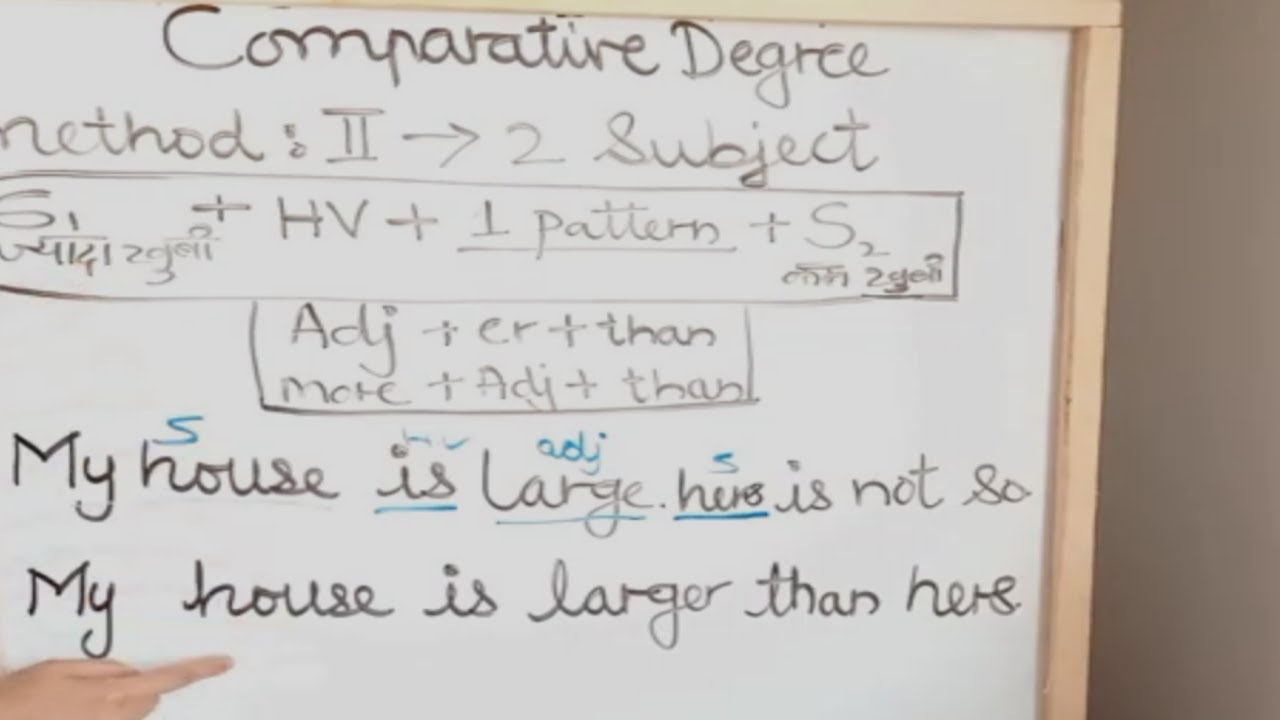 Comparative Degree
method : II → 2 Subject
S₁ + HV + 1 pattern + S₂
ज्यादा खुबी कम खुबी
Adj + er + than
more + Adj + than
S HV adj S
My house is large. hers is not so
My house is larger than hers